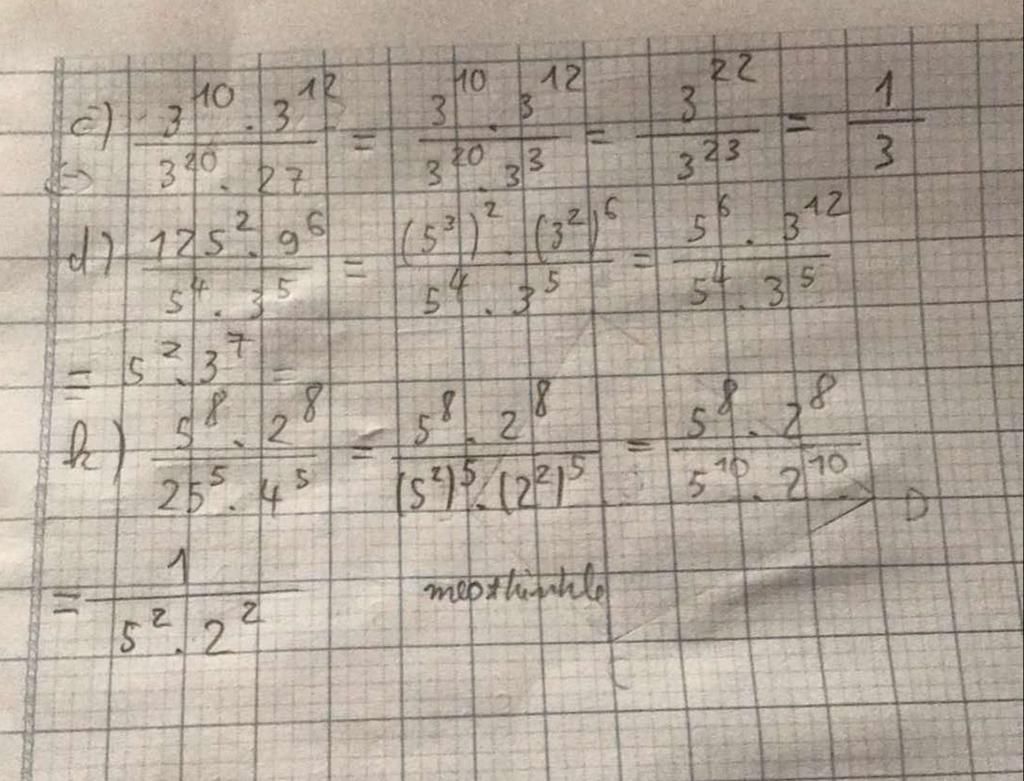 c) \frac{3^{10} . 3^{12}}{3^{20} . 27} = \frac{3^{10} . 3^{12}}{3^{20} . 3^{3}} = \frac{3^{22}}{3^{23}} = \frac{1}{3}
d) \frac{125^{2} . 9^{6}}{5^{4} . 3^{5}} = \frac{(5^{3})^{2} . (3^{2})^{6}}{5^{4} . 3^{5}} = \frac{5^{6} . 3^{12}}{5^{4} . 3^{5}}
= 5^{2} . 3^{7} =
h) \frac{5^{8} . 2^{8}}{25^{5} . 4^{5}} = \frac{5^{8} . 2^{8}}{(5^{2})^{5} . (2^{2})^{5}} = \frac{5^{8} . 2^{8}}{5^{10} . 2^{10}}
= \frac{1}{5^{2} . 2^{2}}